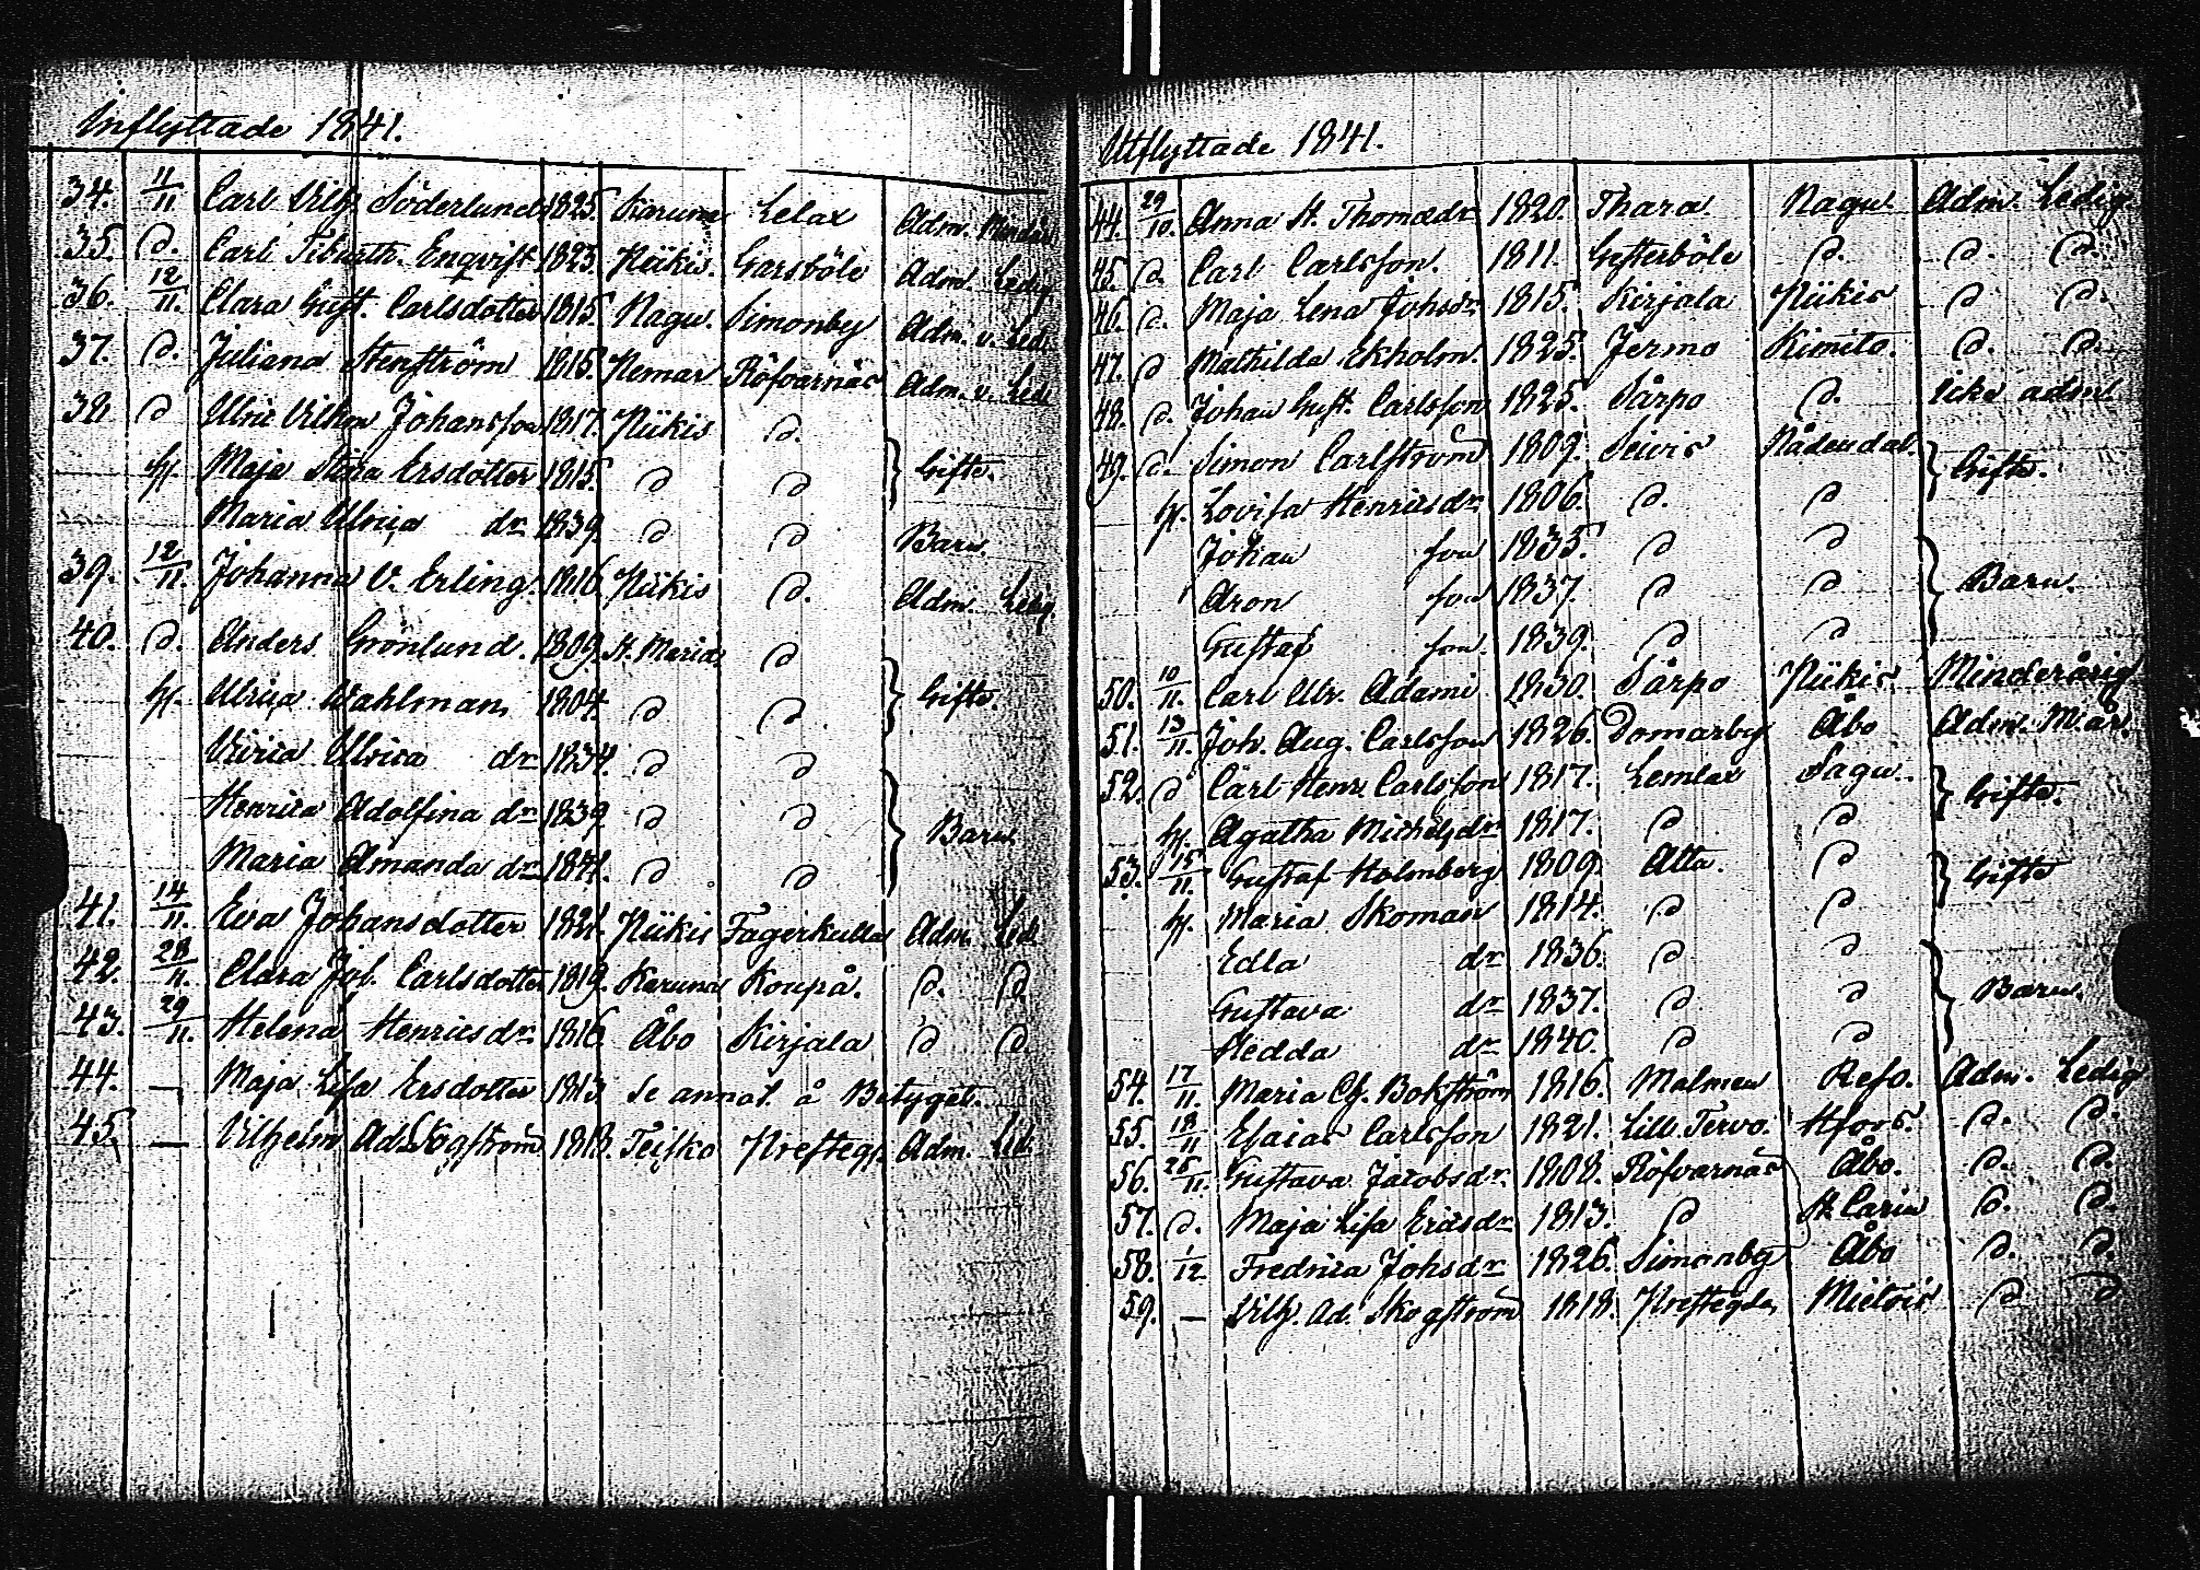 Inflyttade 1841.
34. 11/11 Carl Vilh. Söderlund 1825. Karuna Lelax Adm. Mindår
35. D. Carl Tiburth. Enqvist 1823. Piikis. Garsböle Adm. Ledig
36. 12/11. Clara Gust. Carlsdotter 1815. Nagu. Simonby Adm. v. Led.
37. D. Juliana Stenström 1815. Nemar Röfvarnäs Adm. v. Led.
38. D Ulric Vilhm Johansson 1817. Piikis D.
h. Maja Stina Ersdotter 1815. D D } Gifte.
Maria Ulrica dr 1839. D D Barn.
39. 12/11. Johanna V. Erling. 1816. Piikis D. Adm. Ledig.
40. D. Anders Grönlund. 1809. St. Marie D
h. Ulrica Wahlman 1804. D D. } Gifte.
Ulrica dr 1834. D D
Henrica Adolfina dr 1839. D D } Barn
Maria Amanda dr 1841. D D
41. 14/11. Eva Johansdotter 1821. Piikis Fagerkulla Adm. Led.
42. 28/11. Clara Joh. Carlsdotter 1819. Karuna Koupå. D. D.
43. 29/11. Helena Henricsdr 1816. Åbo Kirjala D D.
44. — Maja Lisa Ersdotter 1813. Se annot. å Betyget.
45. — Vilhelm Ad. Skogström 1818. Teisko Prestegd. Adm. Led.
Utflyttade 1841.
44. 29/10. Anna St. Thomædr 1820. Thara. Nagu. Adm. Ledig.
45. D. Carl Carlsson. 1811. Gesterböle D. D. D.
46. D. Maja Lena Johsdr 1815. Kirjala Piikis D D.
47. D Mathilda Ekholm. 1825. Jermo Kimito. D. D.
48. D. Johan Gust. Carlsson 1825. Sårpo D. Icke adm.
49. D. Simon Carlström 1809. Seivis Nådendal.
h. Lovisa Henricsdr 1806. D. D } Gifte.
Johan son 1835. D D
Aron son 1837. D D } Barn.
Gustaf son. 1839. D D
50. 10/11. Carl Ulr. Adami 1830. Sårpo Piikis. Minderårig
51. 13/11. Joh. Aug. Carlsson 1826. Domarby Åbo Adm. M.år.
52. D Carl Henr. Carlsson 1817. Lemlax Sagu.
h. Agatha Michelsdr 1817. D D } Gifte.
53. 15/11. Gustaf Holmberg 1809. Atta. D
h. Maria Skoman 1814. D D } Gifte
Edla dr 1836. D D
Gustava dr 1837. D D } Barn.
Hedda dr 1840. D D
54. 17/11. Maria Ch. Bokström 1816. Malmen Reso. Adm. Ledig
55. 18/11 Esaias Carlsson 1821. Lill Tervo. Hfors. D. D.
56. 25/11. Gustava Jacobsdr. 1808. Röfvarnäs Åbo. D. D.
57. D. Maja Lisa Ericsdr 1813. D St. Carin D. D.
58. 1/12. Fredrica Johsdr 1826. Simonby Åbo D. D.
59. — Vilh. Ad. Skogström 1818. Prestegdn Mietois D D